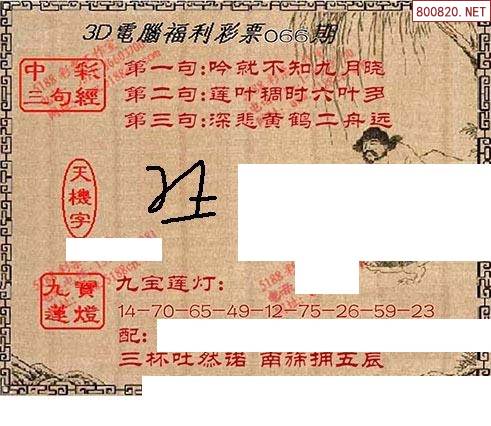 800820.NET
3D電腦福利彩票066期
中彩
三句經
第一句:吟就不知九月晓
第二句:莲叶稠时六叶多
第三句:深悲黄鹤二舟远
天機字
九寶
蓮燈
九宝莲灯:
14-70-65-49-12-75-26-59-23
配:
三杯吐然诺 南旆拥五辰